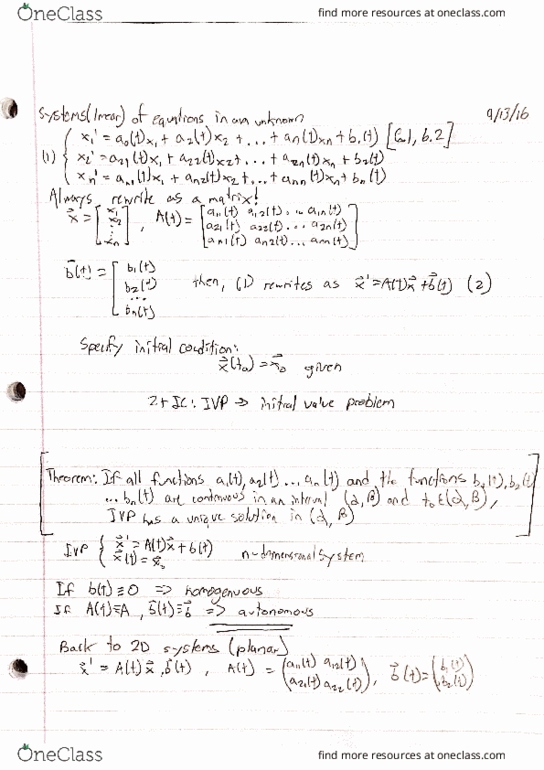 OneClass find more resources at oneclass.com
Systems (linear) of Equations in one unknown 9/13/16
x₁' = a₀(t)x₁ + a₂(t)x₂ + ... + aₙ(t)xₙ + b₁(t) [6.1, 6.2]
(1) x₂' = a₂₁(t)x₁ + a₂₂(t)x₂ + ... + a₂ₙ(t)xₙ + b₂(t)
xₙ' = aₙ₁(t)x₁ + aₙ₂(t)x₂ + ... + aₙₙ(t)xₙ + bₙ(t)
Always rewrite as a matrix!
x⃗ = [x₁ x₂ ... xₙ], A(t) = [a₁₁(t) a₁₂(t) ... a₁ₙ(t)
a₂₁(t) a₂₂(t) ... a₂ₙ(t)
aₙ₁(t) aₙ₂(t) ... aₙₙ(t)]
b⃗(t) = [b₁(t) b₂(t) ... bₙ(t)] then, (1) rewrites as x⃗' = A(t)x⃗ + b⃗(t) (2)
Specify initial condition:
x⃗(t₀) = x⃗₀ given
2 + IC: IVP → initial value problem
Theorem: If all functions a₁(t), a₂(t) ... aₙ(t) and the functions b₁(t), b₂(t)
... bₙ(t) are continuous in an interval (α, β) and t₀ ∈ (α, β),
IVP has a unique solution in (α, β)
IVP { x⃗' = A(t)x⃗ + b(t)
x⃗(t) = x⃗₀ n-dimensional system
If b(t) ≡ 0 => homogenuous
If A(t) ≡ A, b⃗(t) ≡ b⃗ => autonomous
Back to 2D systems (planar)
x⃗' = A(t)x⃗, b⃗(t), A(t) = (a₁₁(t) a₁₂(t)
a₂₁(t) a₂₂(t)), b⃗(t) = (b₁(t) b₂(t))
OneClass find more resources at oneclass.com